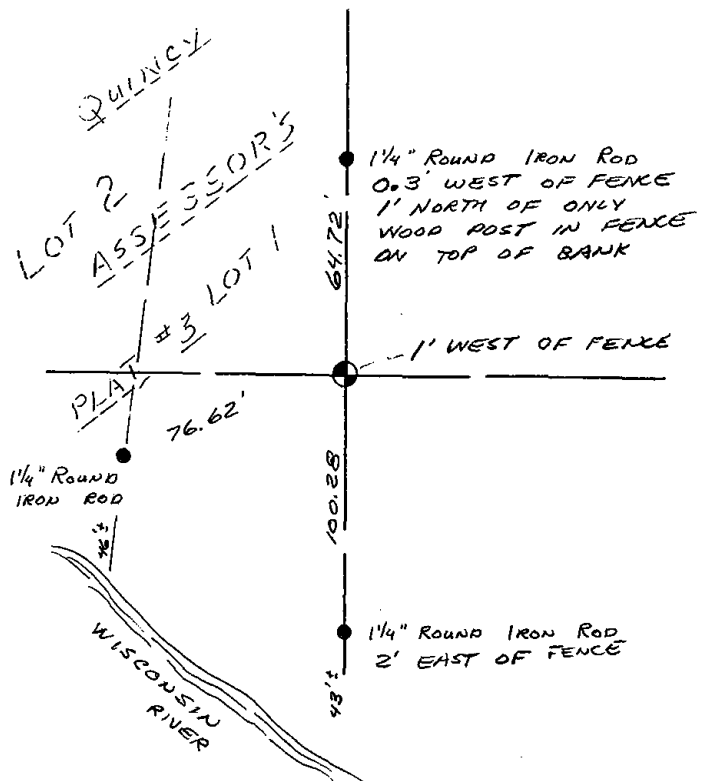 QUINCY
LOT 2
ASSESSOR'S
PLAT #3 LOT 1
1 1/4" ROUND IRON ROD
0.3' WEST OF FENCE
1' NORTH OF ONLY
WOOD POST IN FENCE
ON TOP OF BANK
64.72'
1' WEST OF FENCE
76.62'
1 1/4" ROUND
IRON ROD
46'±
100.28
1 1/4" ROUND IRON ROD
2' EAST OF FENCE
43'±
WISCONSIN
RIVER